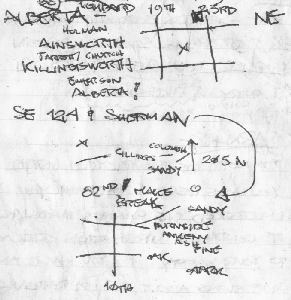 LOMBARD
ALBERTA — 19TH 23RD NE
HOLMAN
AINSWORTH
CHURCH
KILLINGSWORTH
EMERSON
ALBERTA!
X
SE 124 & SHERMAN
X
COLUMBIA
SANDY
205 N
82ND! MAKE
BREAK
SANDY
BURNSIDE
ANKENY
ASH
PINE
OAK
STARK